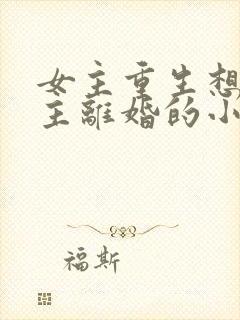 女主重生想
主離婚的小
福斯